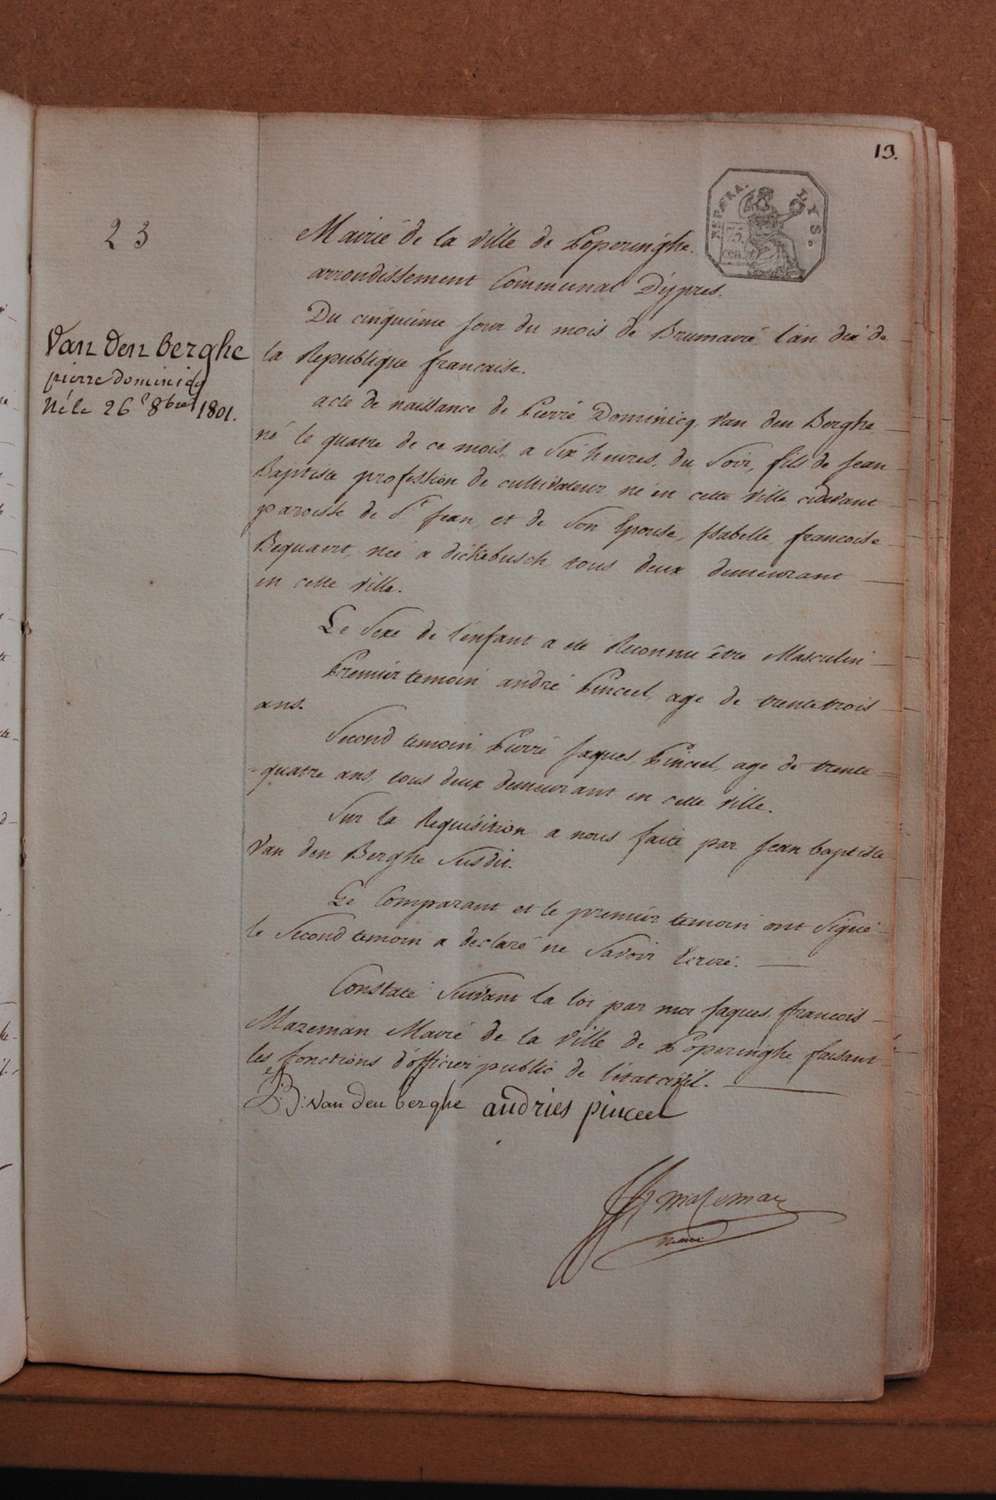 13.
REP. FRA.
LYS.
75
CEN.
23
Mairié de la Ville de Poperinghe.
arrondissement Communal D'ypres.
Du cinquieme jour du mois de Brumairé l'an dix de
la Republique francaise.
Van Den berghe
pierre dominicq
Né le 26 8bre 1801.
acte de naissance de Pierré Dominicq Van den Berghe
né le quatre de ce mois, a Six heures, du Soir, fils de Jean
Baptiste profession de cultivateur né en cette ville cidevant
paroisse de St Jean, et de Son Epouse, Isabelle francoise
Bequaert, née a dickebusch tous deux demeurant
en cette Ville.
Le Sexe de l'enfant a été Reconnu être Masculin
Premier temoin andré Pinceel, age de trente trois
ans.
Second temoin Pierré Jaques Pinceel, age de trente
-quatre ans, tous deux demeurant en cette Ville.
Sur la Requisition a nous faite par Jean baptiste
Van den Berghe Susdit.
Le Comparant et le premier temoin ont Signé
le Second temoin a declaré ne Savoir Ecrire.
Constaté Suivant la loi par moi Jaques francois
Mazeman Mairé de la Ville de Poperinghe faisant
les fonctions d'officier public de l'etat civil.
B: Van den berghe andries pinceel
mazeman
maire